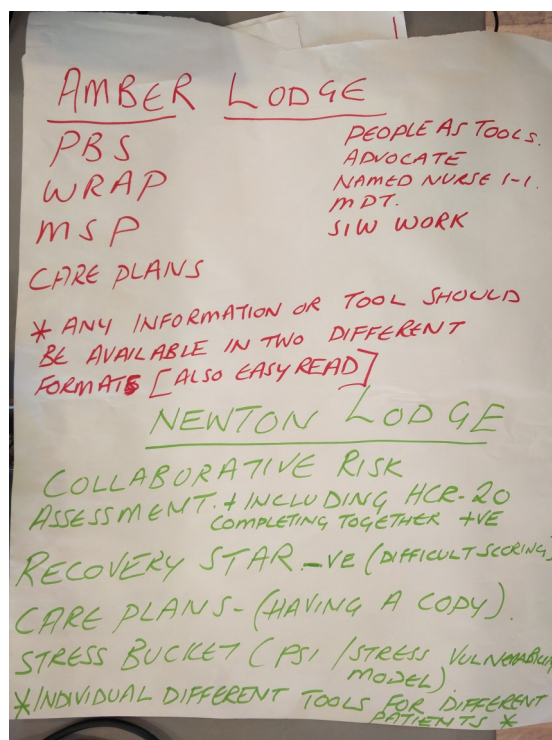 AMBER LODGE
PBS
WRAP
MSP
CARE PLANS
PEOPLE AS TOOLS.
ADVOCATE
NAMED NURSE 1-1.
MDT.
SIW WORK
* ANY INFORMATION OR TOOL SHOULD
BE AVAILABLE IN TWO DIFFERENT
FORMATS [ALSO EASY READ]
NEWTON LODGE
COLLABORATIVE RISK
ASSESSMENT. + INCLUDING HCR-20
COMPLETING TOGETHER +VE
RECOVERY STAR -VE (DIFFICULT SCORING)
CARE PLANS - (HAVING A COPY).
STRESS BUCKET (PSI / STRESS VULNERABILITY
MODEL).
* INDIVIDUAL DIFFERENT TOOLS FOR DIFFERENT
PATIENTS *